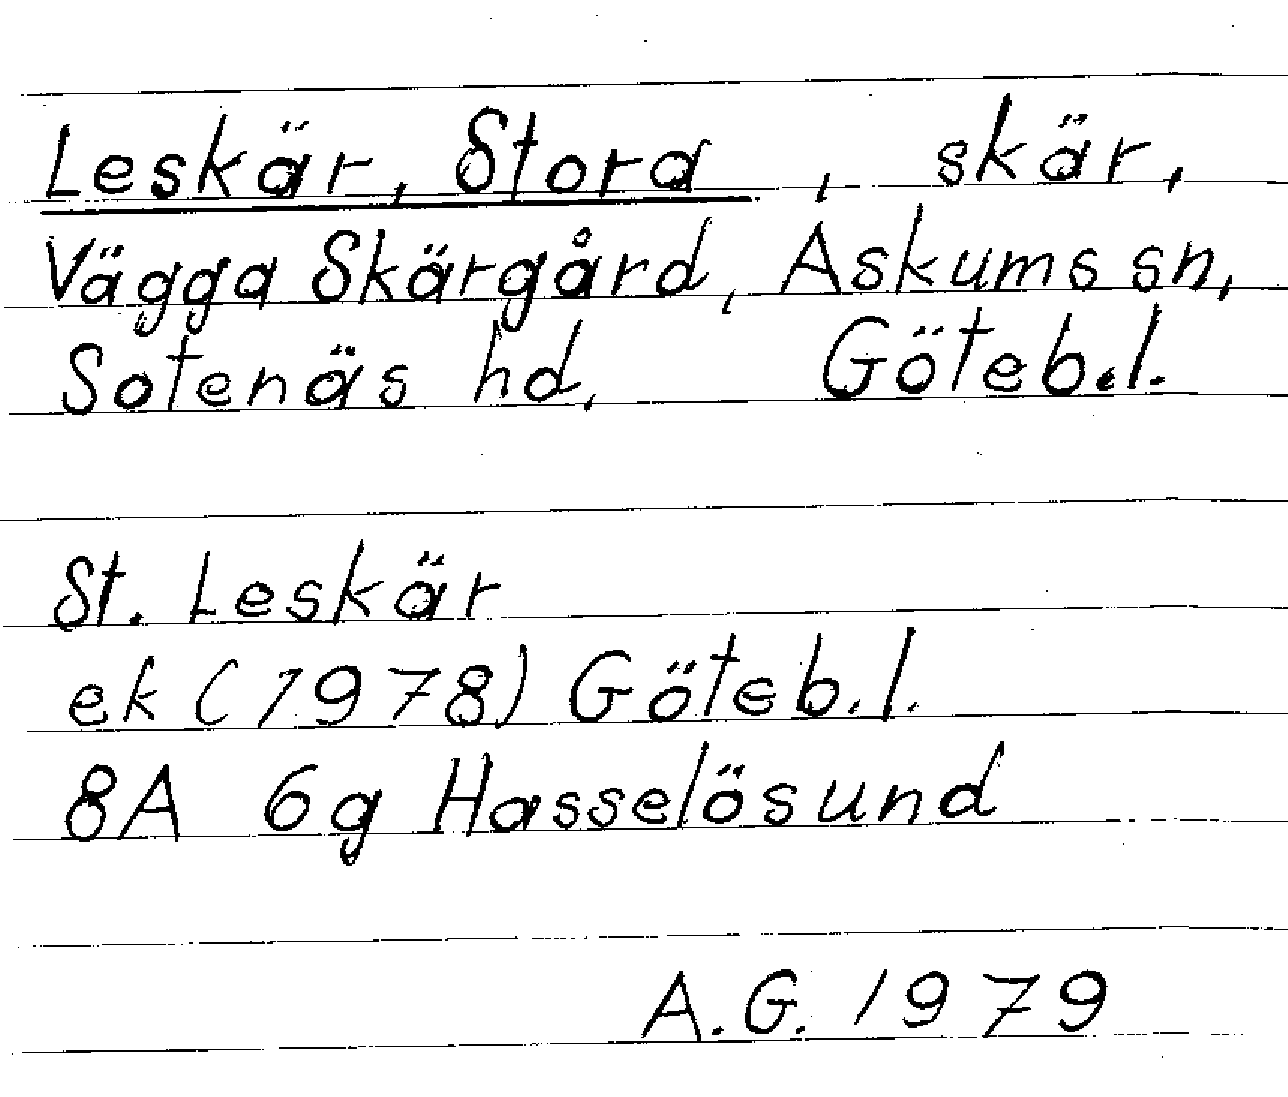 Leskär, Stora, skär,
Vägga Skärgård, Askums sn,
Sotenäs hd, Göteb.l.
St. Leskär
ek (1978) Göteb.l.
8A 6g Hasselösund
A.G. 1979